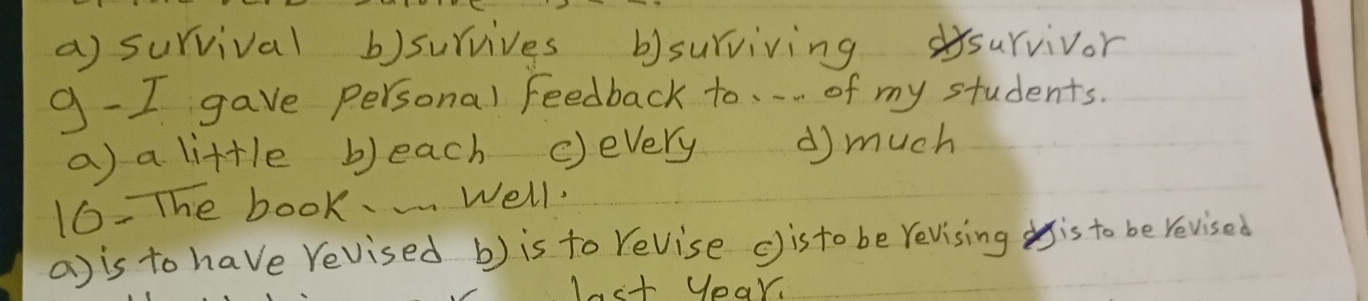 a) survival b) survives b) surviving d) survivor
9 - I gave personal feedback to .... of my students.
a) a little b) each c) every d) much
10 - The book .... well.
a) is to have revised b) is to revise c) is to be revising d) is to be revised
last year.